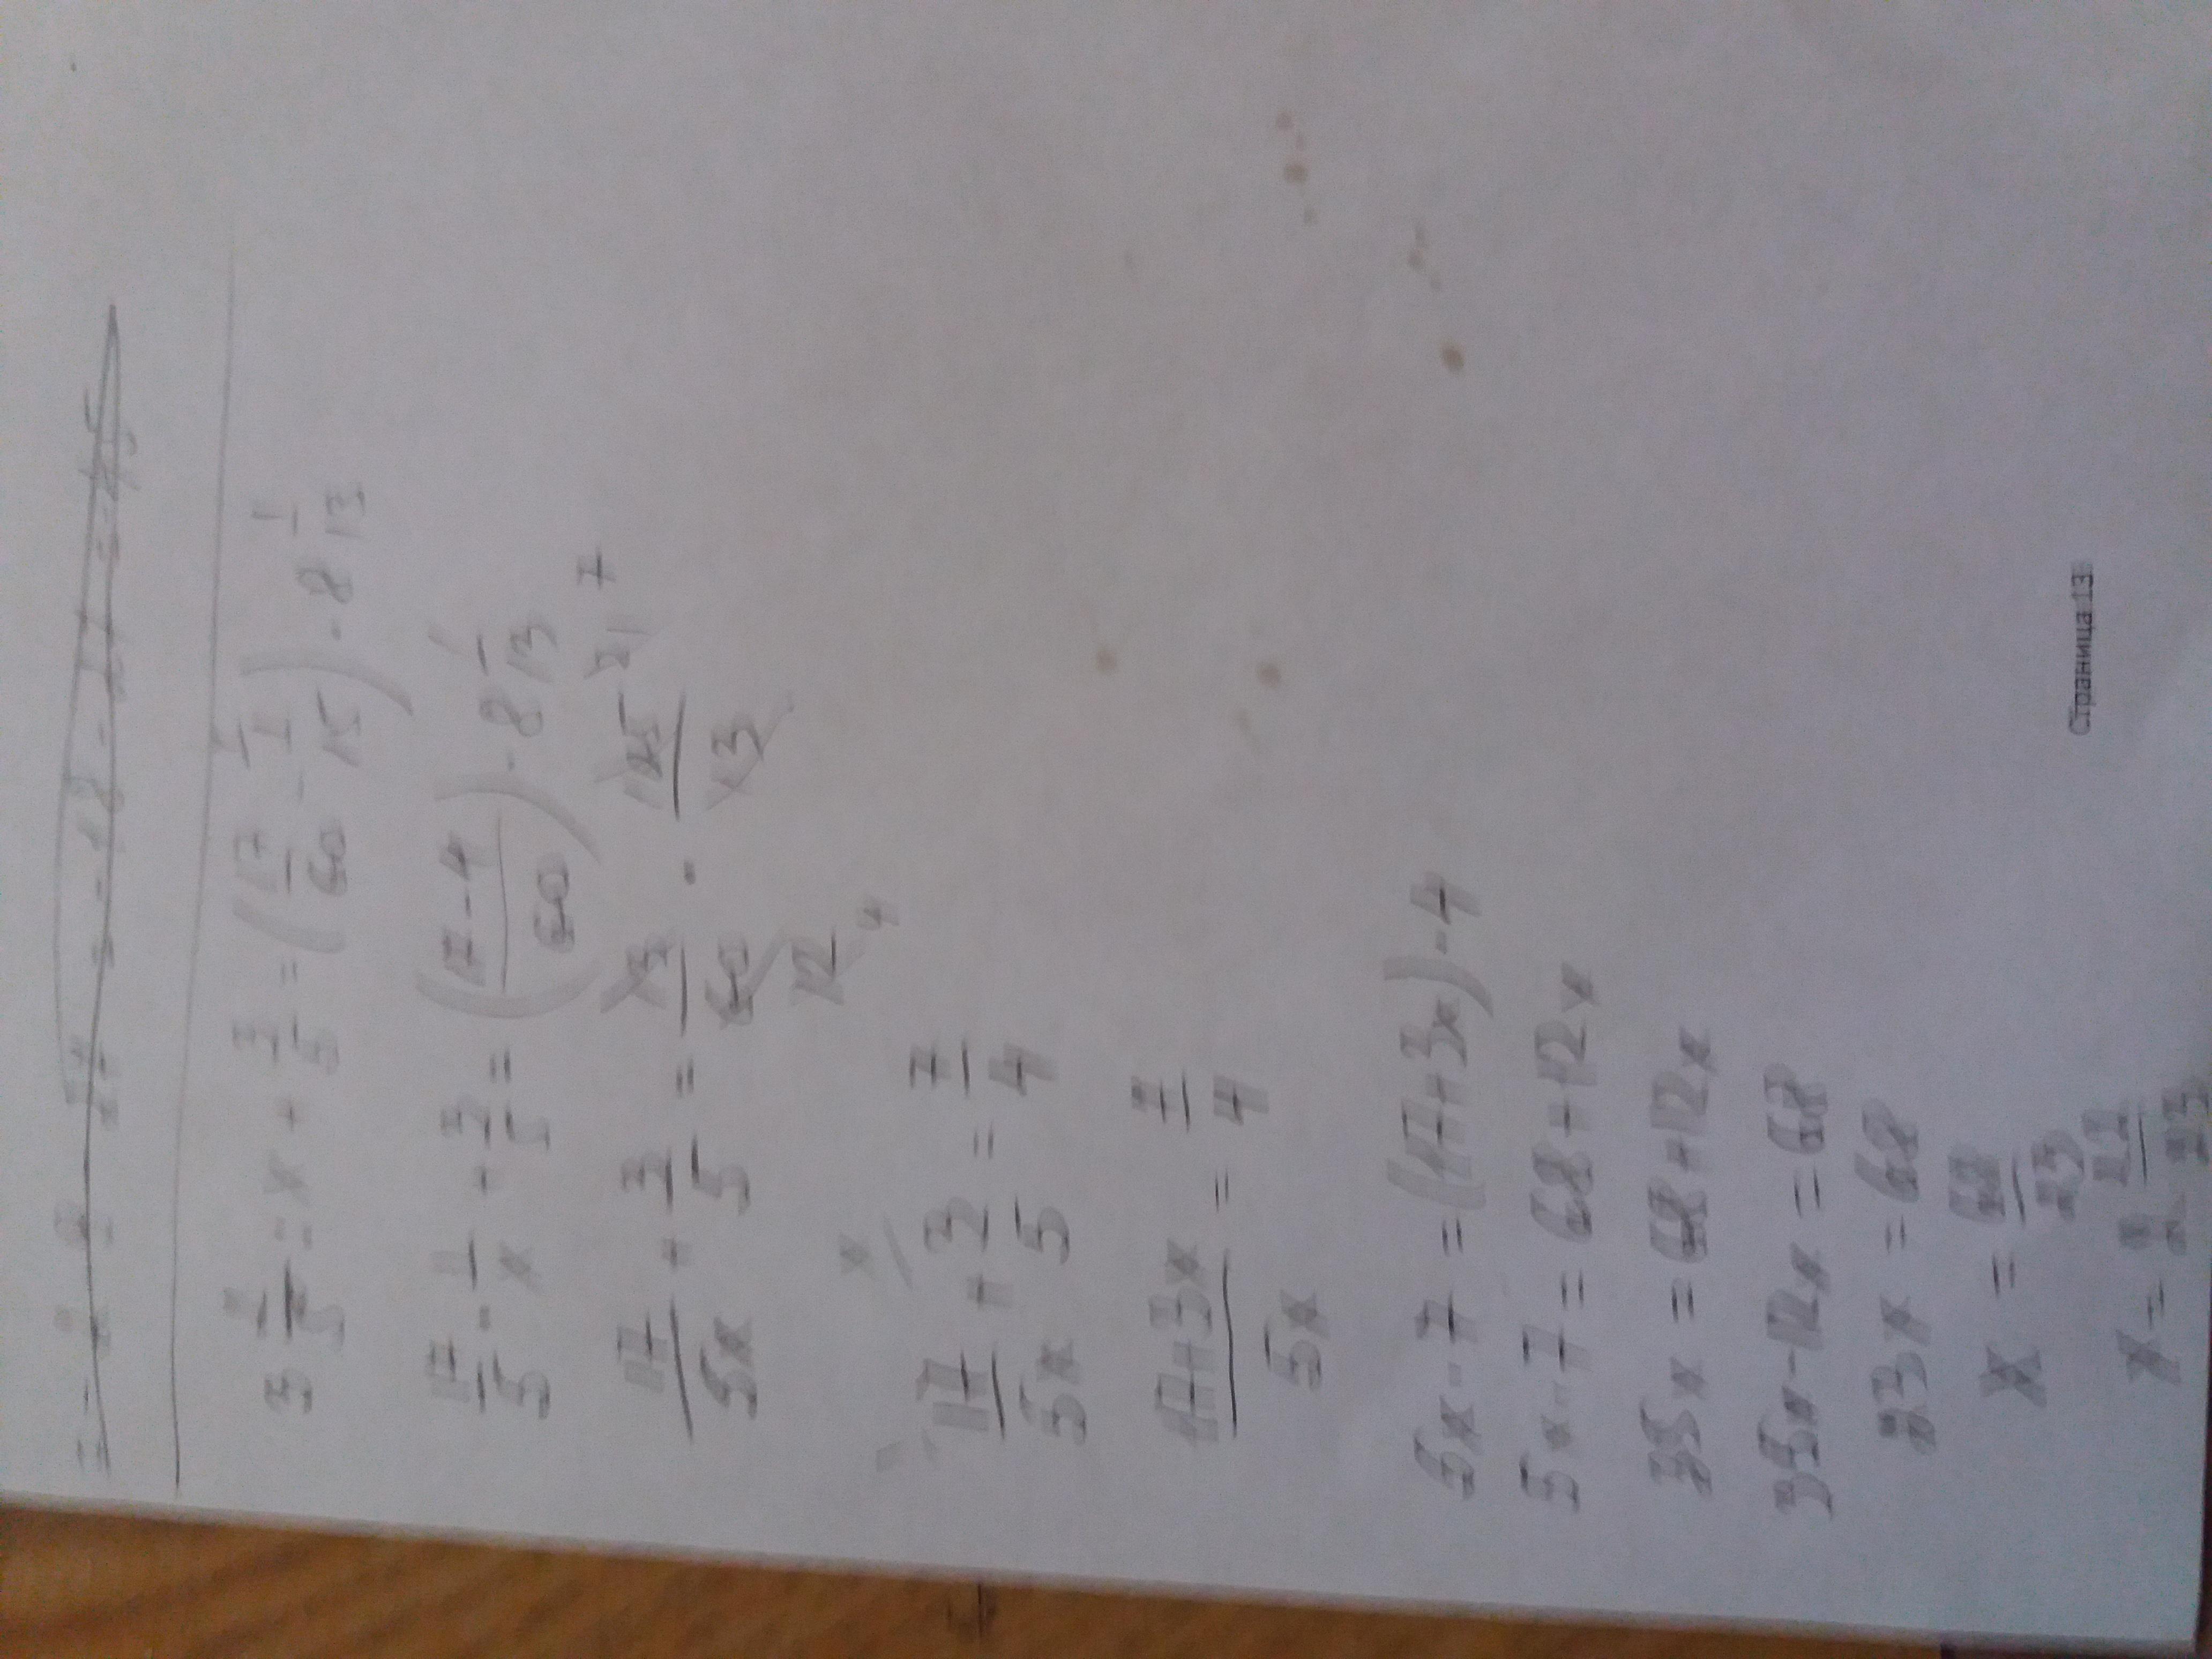 3 2/5 : x + 3/5 = (17/60 - 1/15) · 8 1/13
17/5 · 1/x + 3/5 = ((17-4)/60) · 8 1/13
17/5x + 3/5 = 13/60 · 105/13 21 7
12 4
x
17/5x + 3/5 = 7/4
17+3x/5x = 7/4
5x · 7 = (17+3x) · 4
5x · 7 = 68 + 12x
35x = 68 + 12x
35x - 12x = 68
23x = 68
x = 68/23
x = 2 22/23
Страница 13